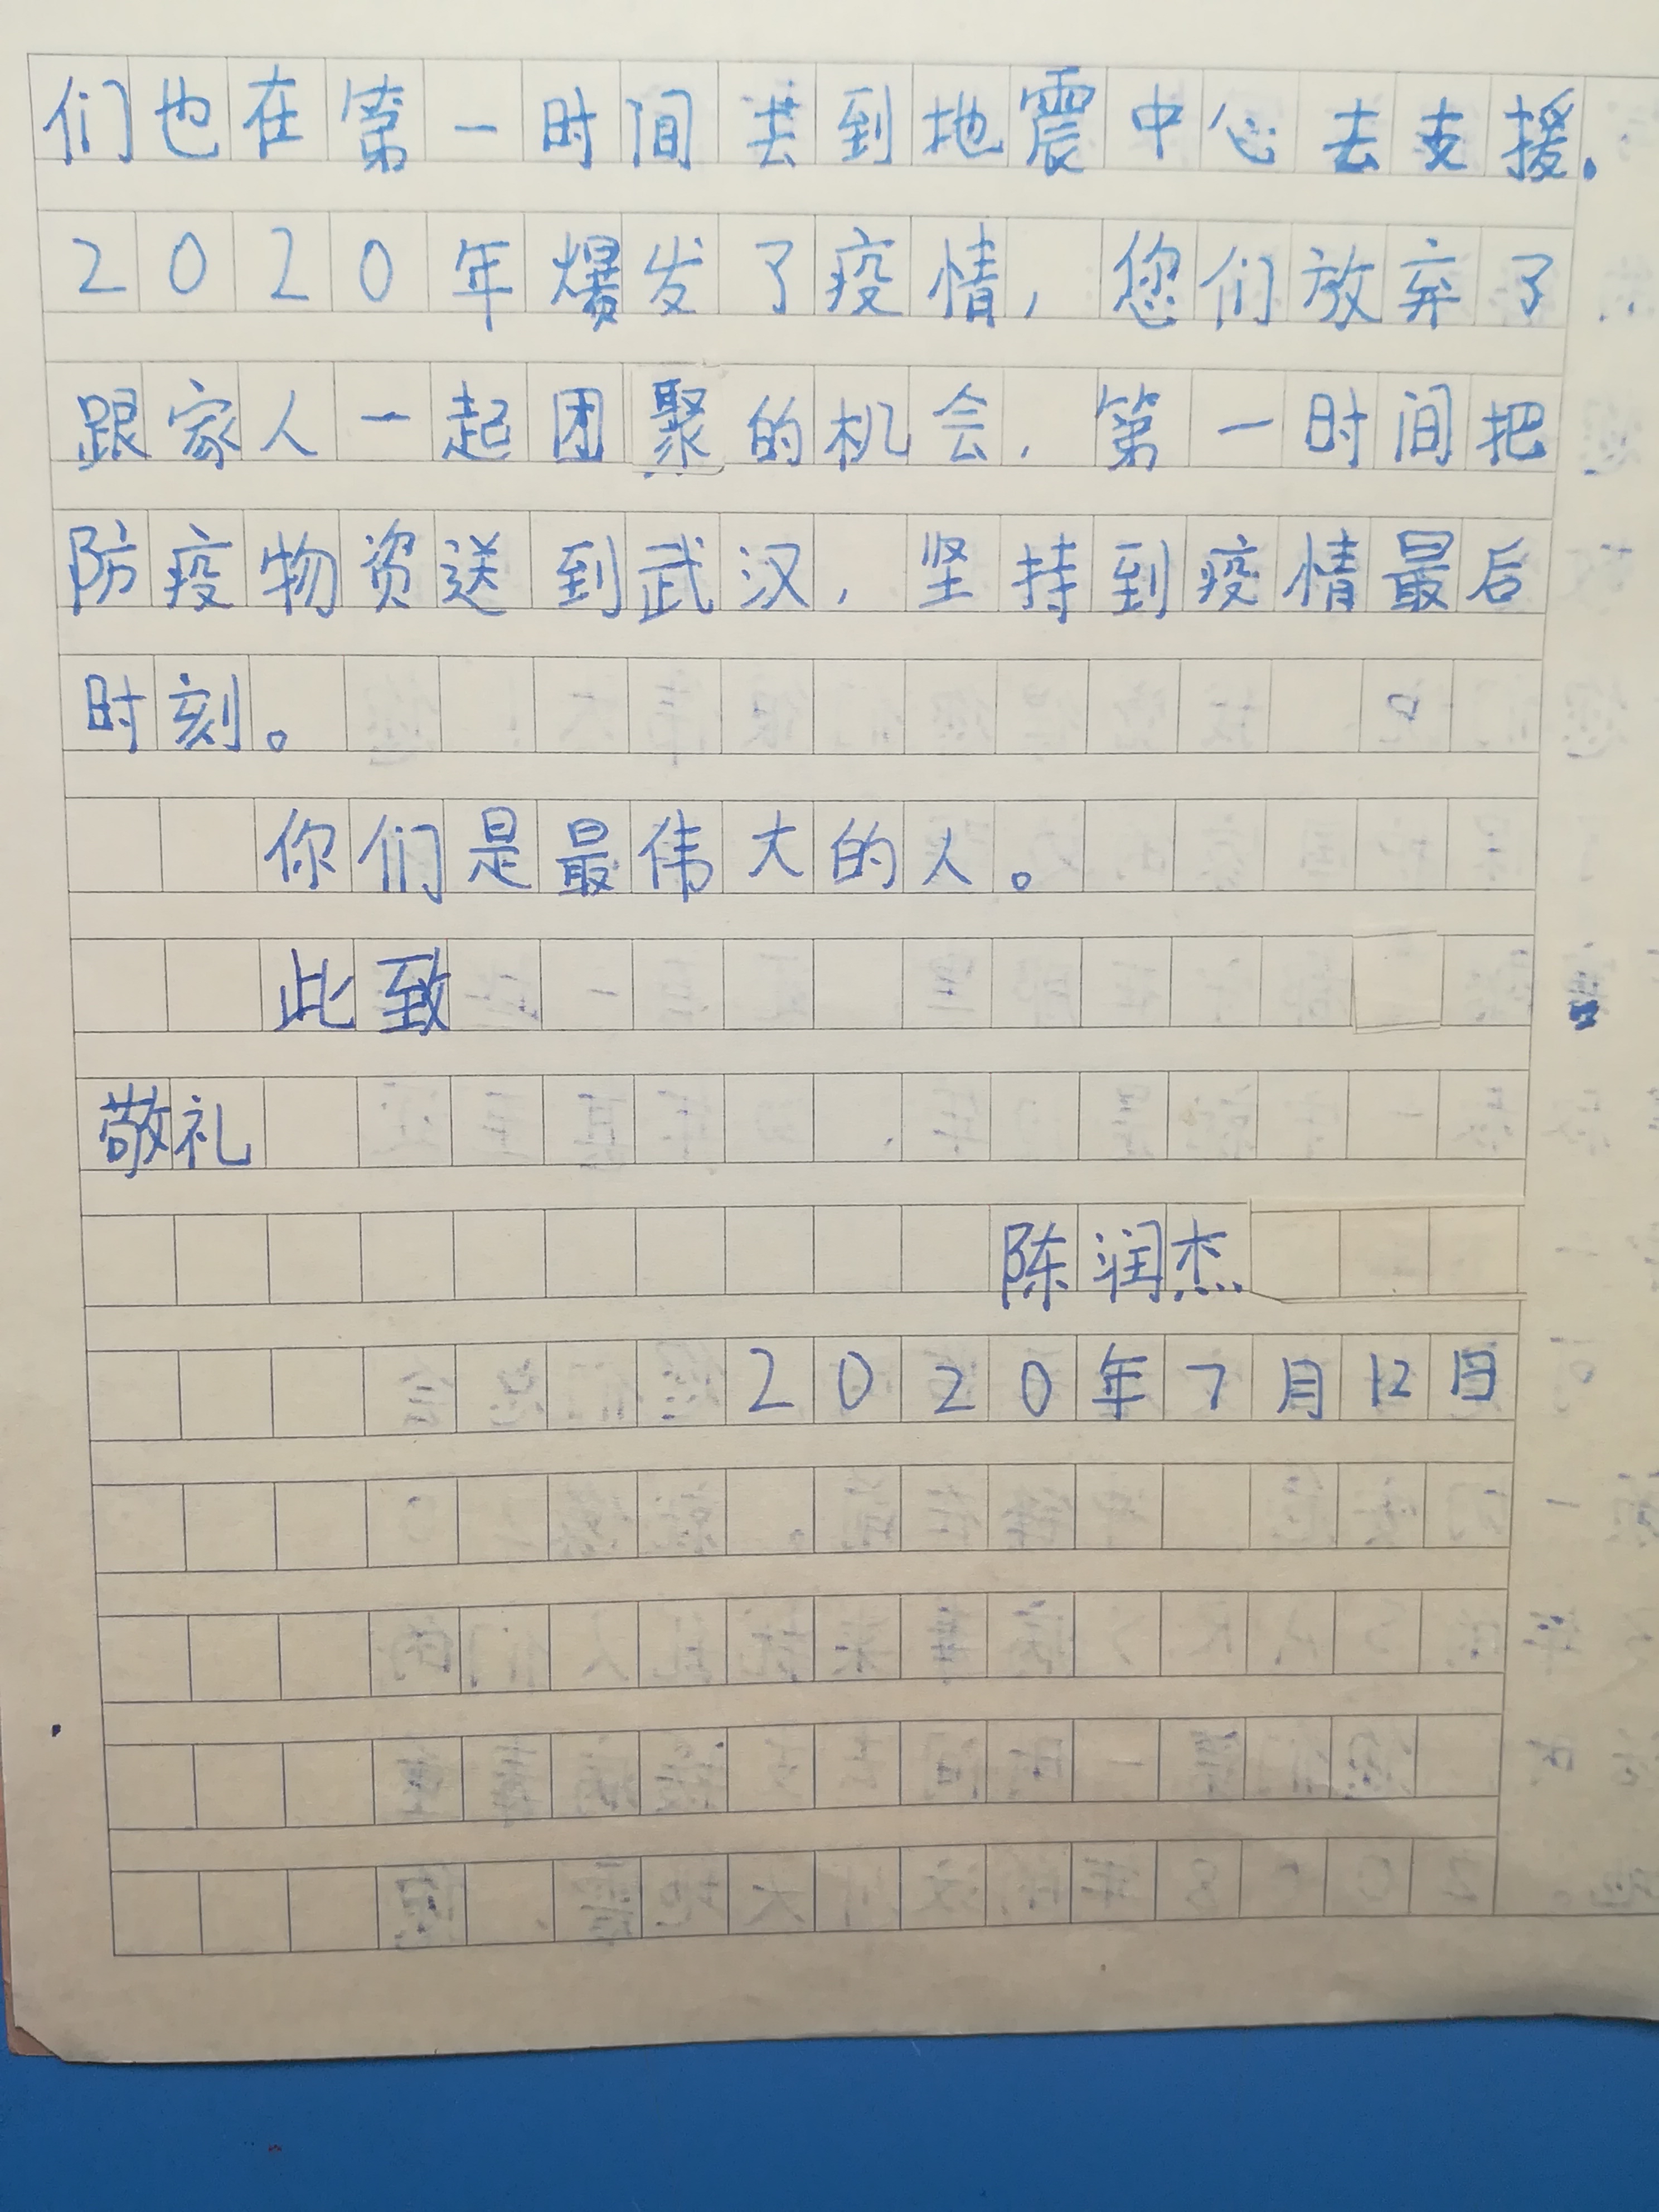 们也在第一时间去到地震中心去支援。
2020年爆发了疫情,您们放弃了
跟家人一起团聚的机会,第一时间把
防疫物资送到武汉,坚持到疫情最后
时刻。
你们是最伟大的人。
此致
敬礼
陈润杰
2020年7月12日